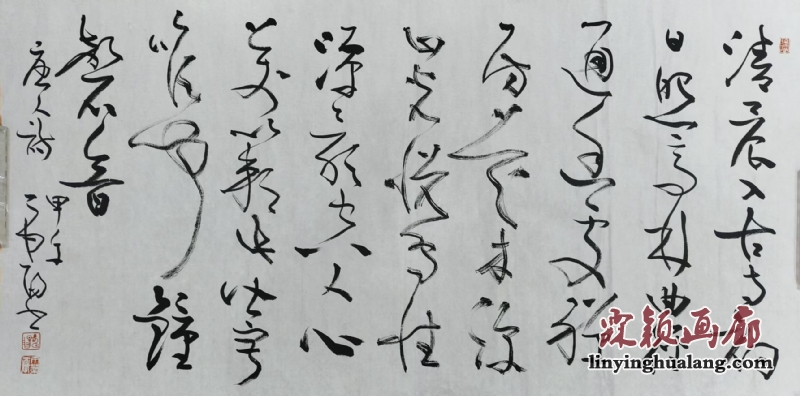 清晨入古寺初
日照高林曲径
通幽处禅
房花木深
山光悦鸟性
潭影空人心
万籁此俱寂
鐘
磬音
唐人诗
甲午
霖颖画廊
linyinghualang.com